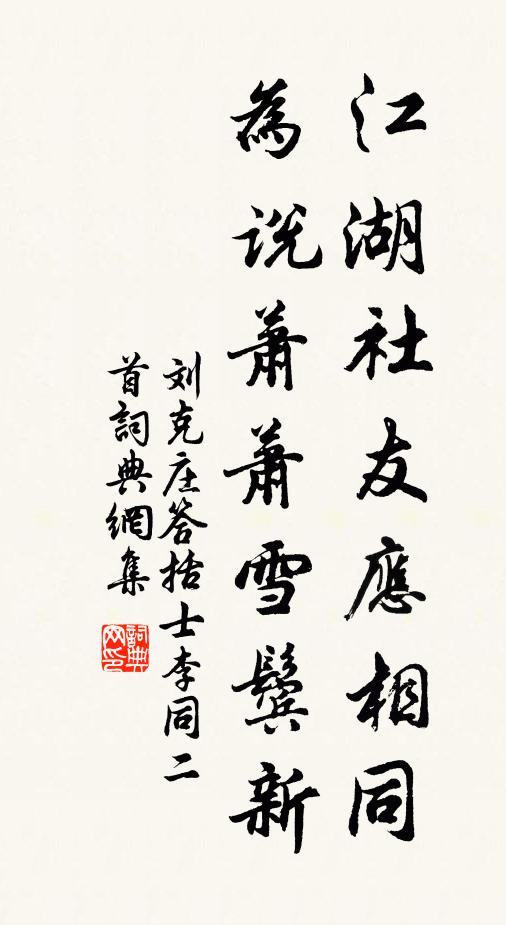 江湖社友應相同
為説蕭蕭雪鬢新
刘克庄答括士李同二
首詞典網集
詞典
网印